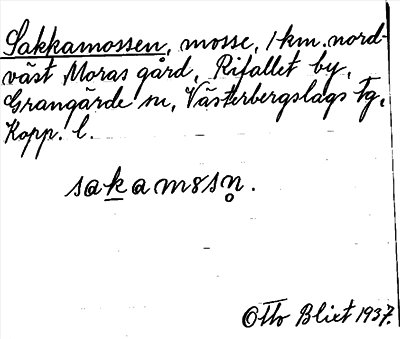 Sakkamossen, mosse, 1 km. nord-
väst Moras gård, Rifallet by,
Grangärde sn, Västerbergslags tg,
Kopp. l.
sak̲amosn̥.
Otto Blixt 1937.